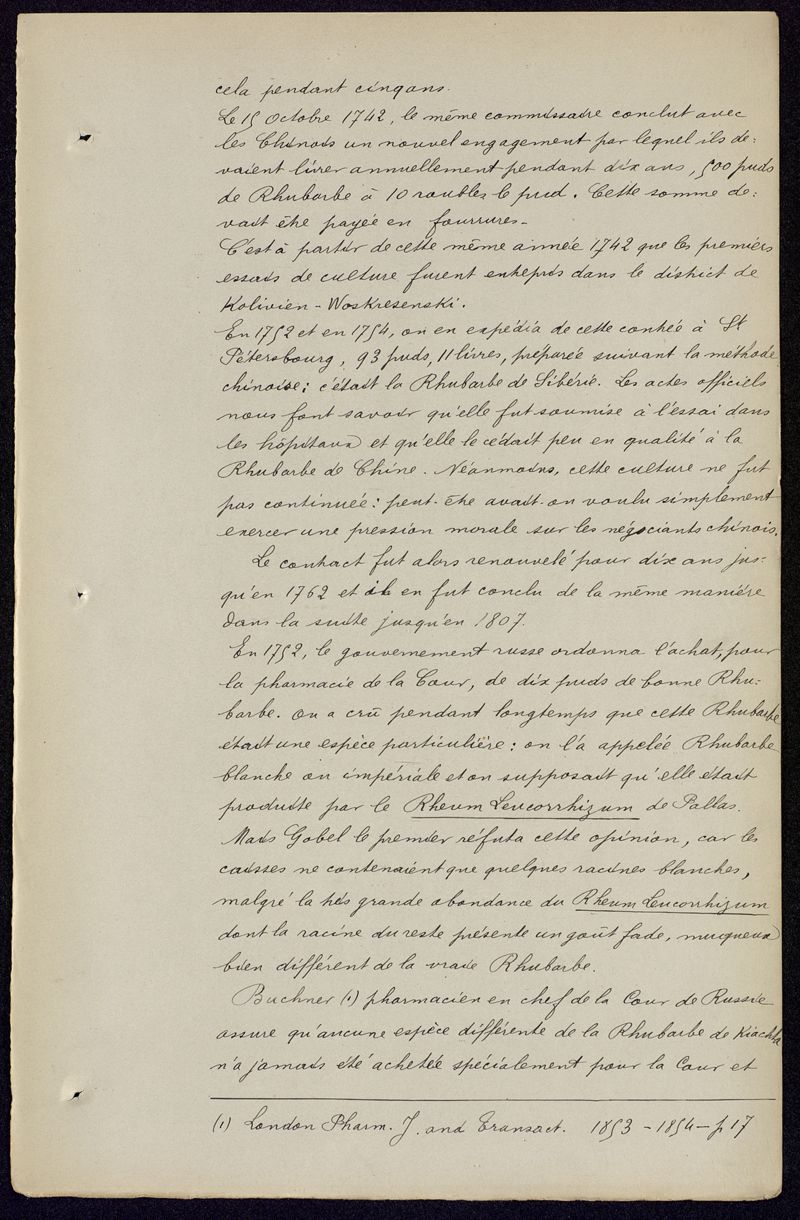 cela pendant cinq ans.
Le 15 Octobre 1742, le même commissaire conclut avec
les Chinois un nouvel engagement par lequel ils de:
vaient livrer annuellement pendant dix ans, 500 puds
de Rhubarbe à 10 roubles le pud. Cette somme de:
vait être payée en fourrures.
C'est à partir de cette même année 1742 que les premiers
essais de culture furent entrepris dans le district de
Kolivien-Woskresenski.
En 1752 et en 1754, on en expédia de cette contrée à St
Pétersbourg, 93 puds, 11 livres, préparée suivant la méthode
chinoise: c'était la Rhubarbe de Sibérie. Les actes officiels
nous font savoir qu'elle fut soumise à l'essai dans
les hôpitaux et qu'elle le cédait peu en qualité à la
Rhubarbe de Chine. Néanmoins, cette culture ne fut
pas continuée: peut-être avait-on voulu simplement
exercer une pression morale sur les négociants chinois.
Le contract fut alors renouvelé pour dix ans jus-
qu'en 1762 et il en fut conclu de la même manière
dans la suite jusqu'en 1807.
En 1752, le gouvernement russe ordonna l'achat, pour
la pharmacie de la Cour, de dix puds de bonne Rhu-
barbe. On a crû pendant longtemps que cette Rhubarbe
était une espèce particulière: on l'a appelée Rhubarbe
blanche ou impériale et on supposait qu'elle était
produite par le Rheum Leucorrhizum de Pallas.
Mais Gobel le premier réfuta cette opinion, car les
caisses ne contenaient que quelques racines blanches,
malgré la très grande abondance du Rheum Leucorrhizum
dont la racine du reste présente un goût fade, muqueux
bien différent de la vraie Rhubarbe.
Buchner (1) pharmacien en chef de la Cour de Russie
assure qu'aucune espèce différente de la Rhubarbe de Kiachta
n'a jamais été achetée spécialement pour la Cour et
(1) London Pharm. J. and Transact. 1853-1854-p 17